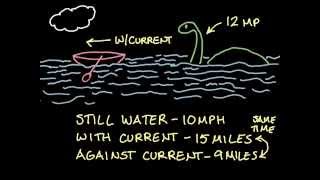 12 MP
W/CURRENT
STILL WATER - 10 MPH
SAME
TIME
WITH CURRENT - 15 MILES
AGAINST CURRENT - 9 MILES